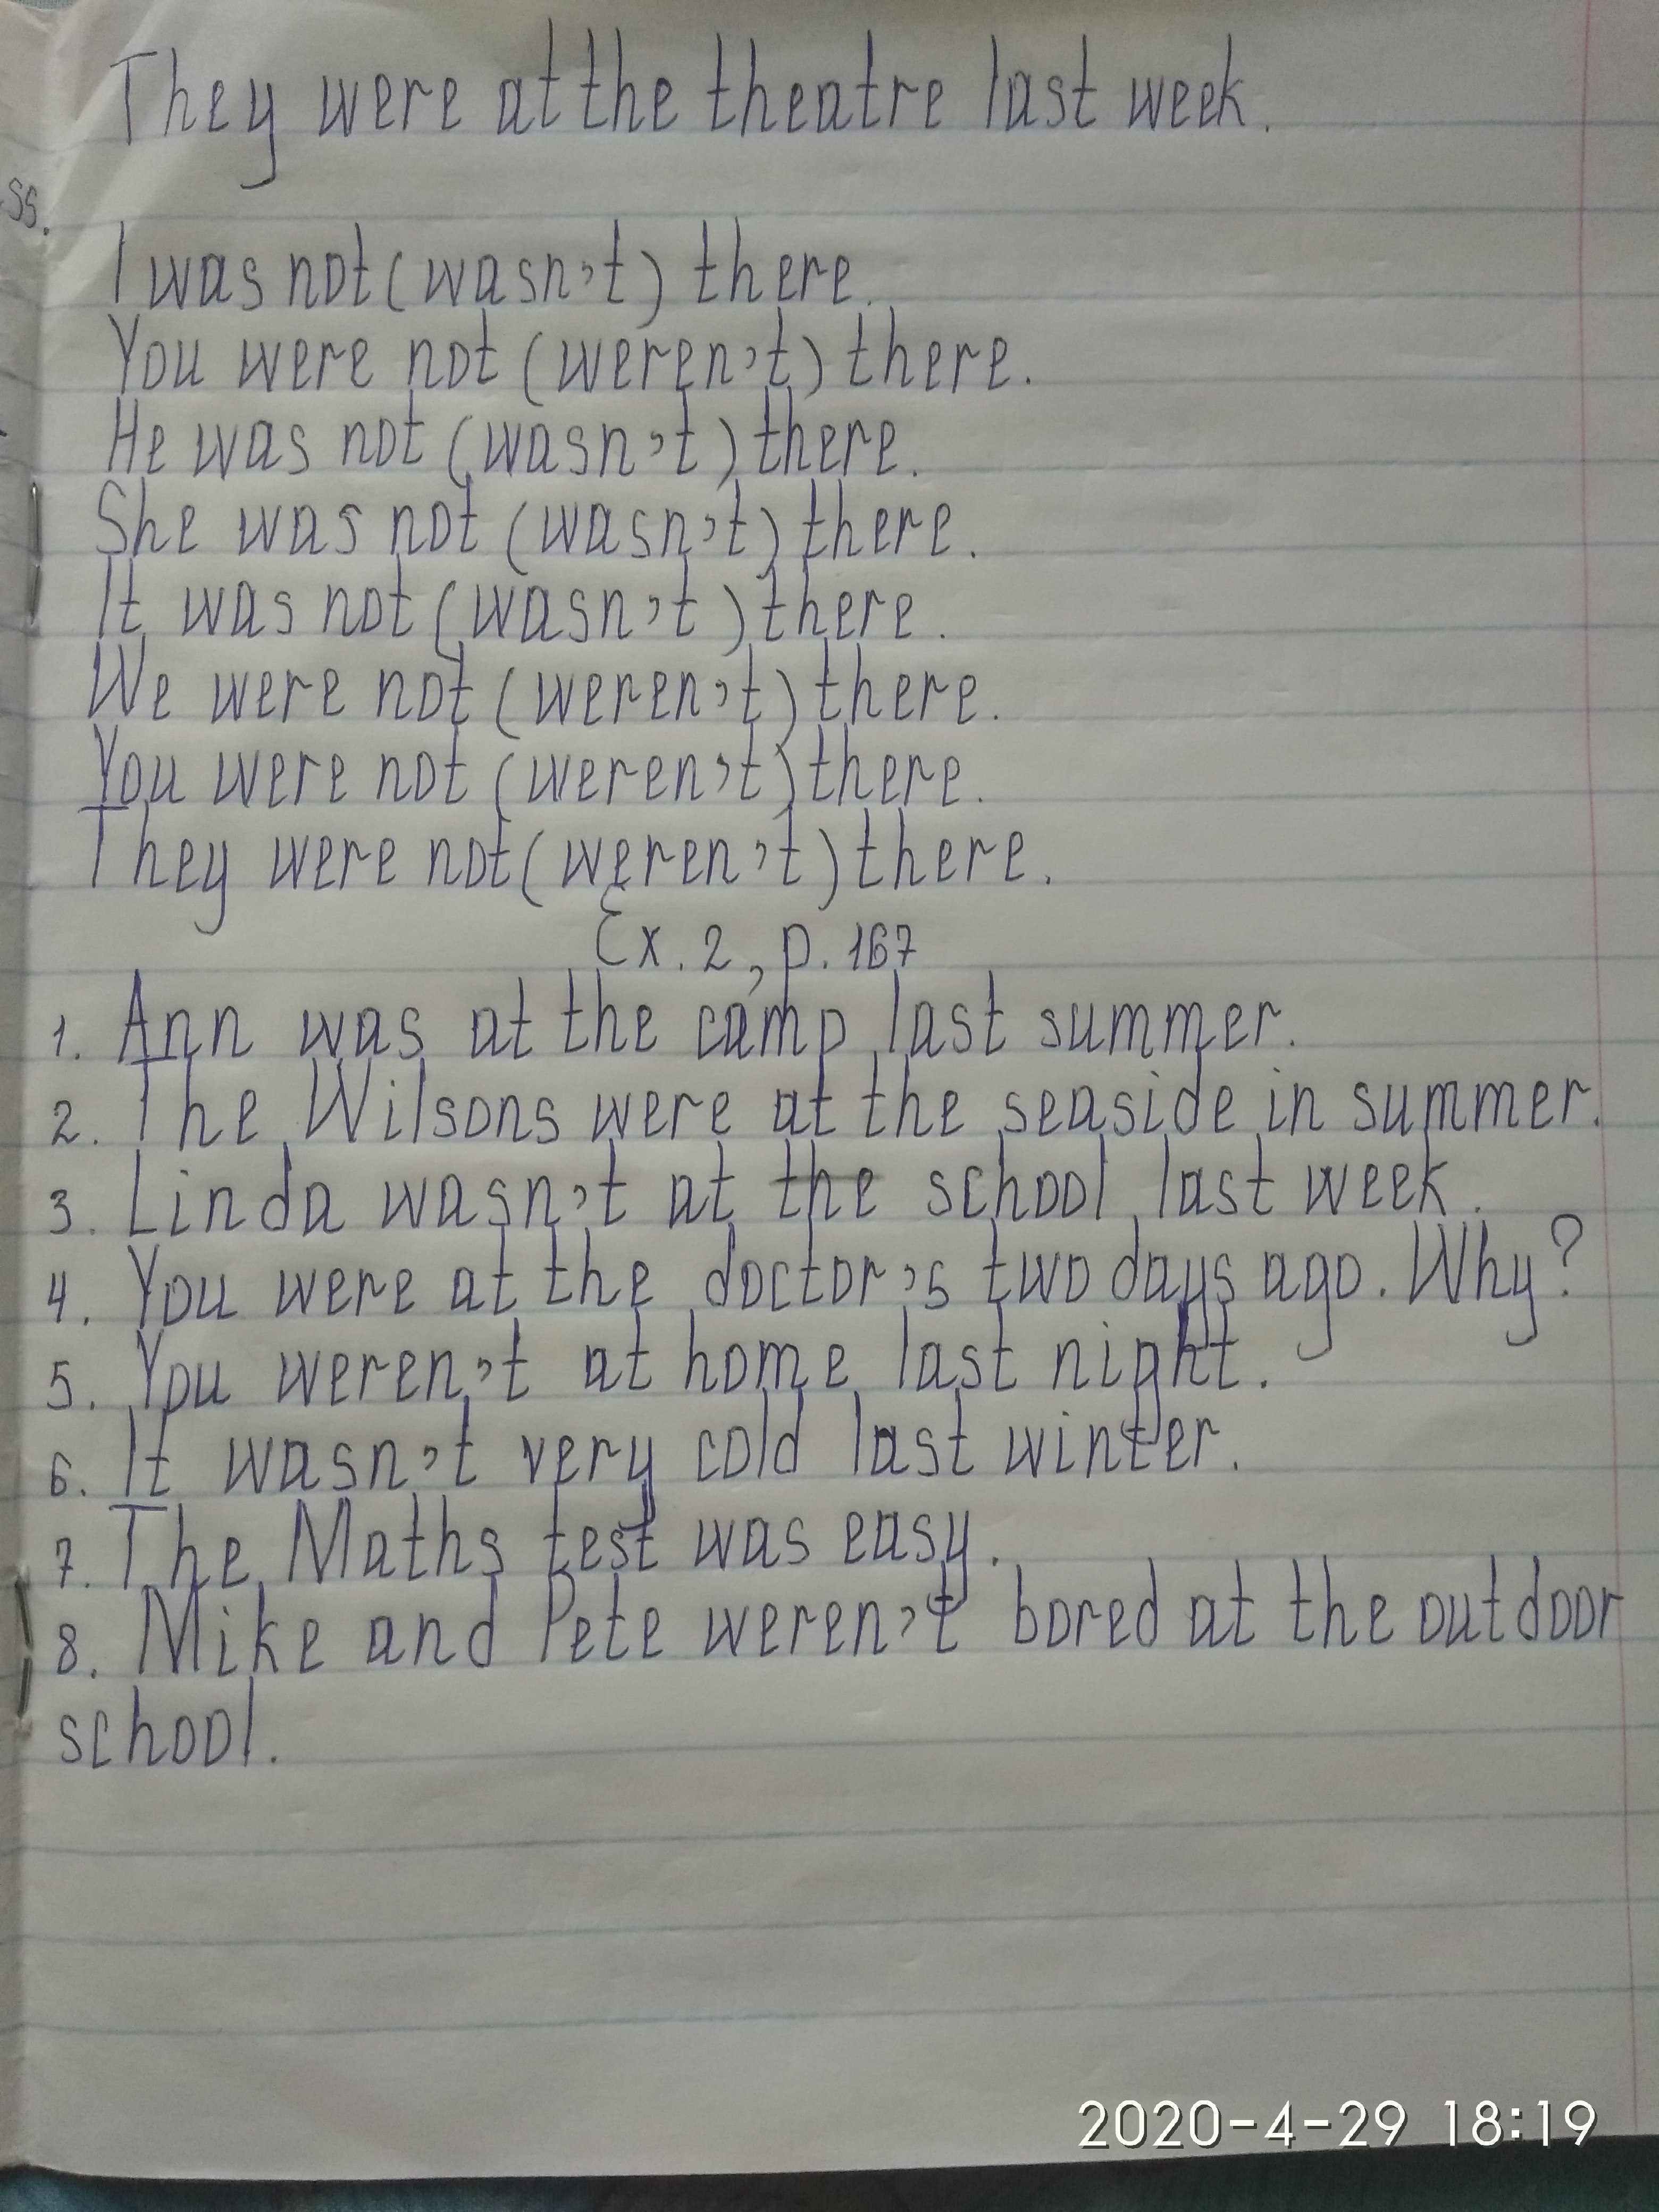 They were at the theatre last week.
ss.
I was not (wasn't) there.
You were not (weren't) there.
He was not (wasn't) there.
She was not (wasn't) there.
It was not (wasn't) there.
We were not (weren't) there.
You were not (weren't) there.
They were not (weren't) there.
Ex. 2, p. 167
1. Ann was at the camp last summer.
2. The Wilsons were at the seaside in summer.
3. Linda wasn't at the school last week.
4. You were at the doctor's two days ago. Why?
5. You weren't at home last night.
6. It wasn't very cold last winter.
7. The Maths test was easy.
8. Mike and Pete weren't bored at the outdoor
school.
2020-4-29 18:19